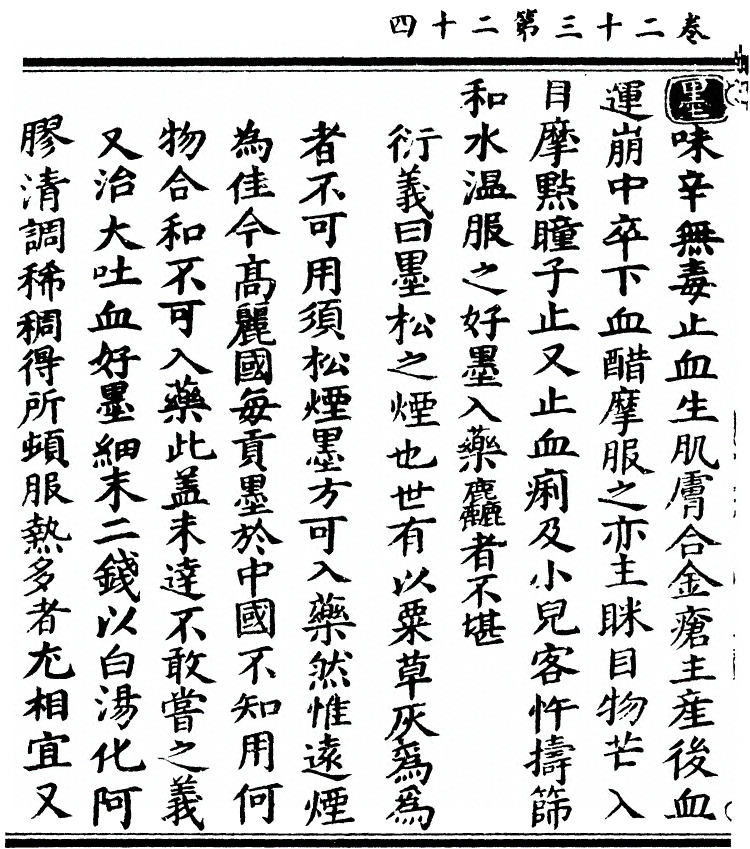 卷二十三第二十四
墨味辛無毒止血生肌膚合金瘡主產後血
運崩中卒下血醋摩服之亦主眯目物芒入
目摩點瞳子止又止血痢及小兒客忤擣篩
和水溫服之好墨入藥麤者不堪
衍義曰墨松之煙也世有以粟草灰爲爲
者不可用須松煙墨方可入藥然惟遠煙
為佳今高麗國每貢墨於中國不知用何
物合和不可入藥此盖未達不敢嘗之義
又治大吐血好墨細末二錢以白湯化阿
膠清調稀稠得所頓服熱多者尤相宜又